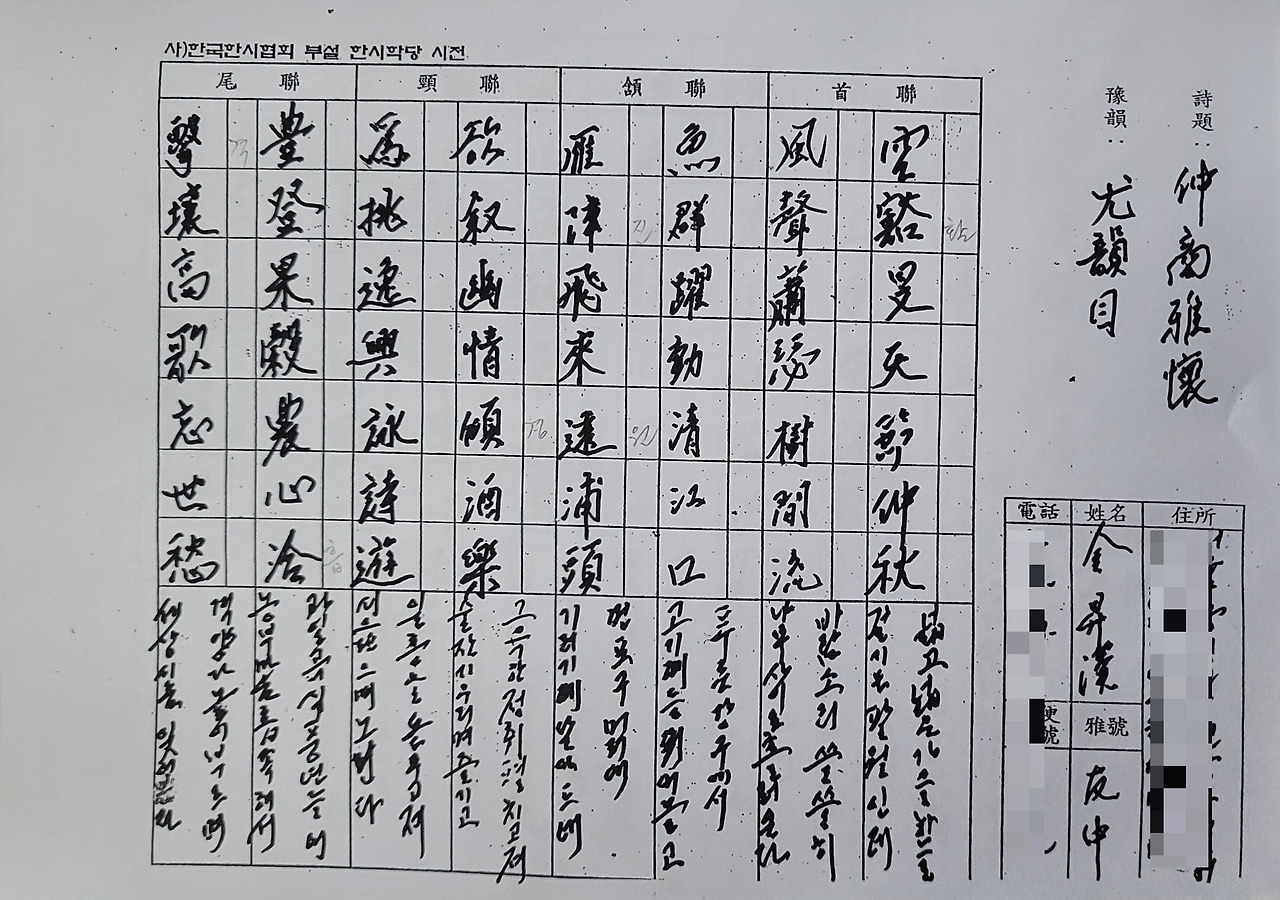 사)한국한시협회 부설 한시학당 시전
詩題: 仲商雅懷
豫韻: 尤韻目
首聯
頷聯
頸聯
尾聯
寥豁旻天節仲秋
風聲蕭瑟樹間流
魚群躍動清江口
雁陣飛來遠浦頭
欲叙幽情傾酒樂
爲挑逸興詠詩遊
豊登果穀農心洽
擊壤高歌忘世愁
넓고 넓은 가을 하늘
절서는 팔월인데
바람소리 쓸쓸히
나무사이로 흐르는다
푸른 강구에서
고기떼는 뛰어놀고
먼 포구 머리에
기러기떼 날아드네
그윽한 정취 펼치고져
술잔 기우리며 즐기고
일흥을 돋우고져
시 으프며 노닌다
과일 곡식 풍년 드니
농부 마음 흡족해서
격양가 높이 부르며
세상시름 잊어본다
住所
姓名
金昇漢
雅號
友中
電話